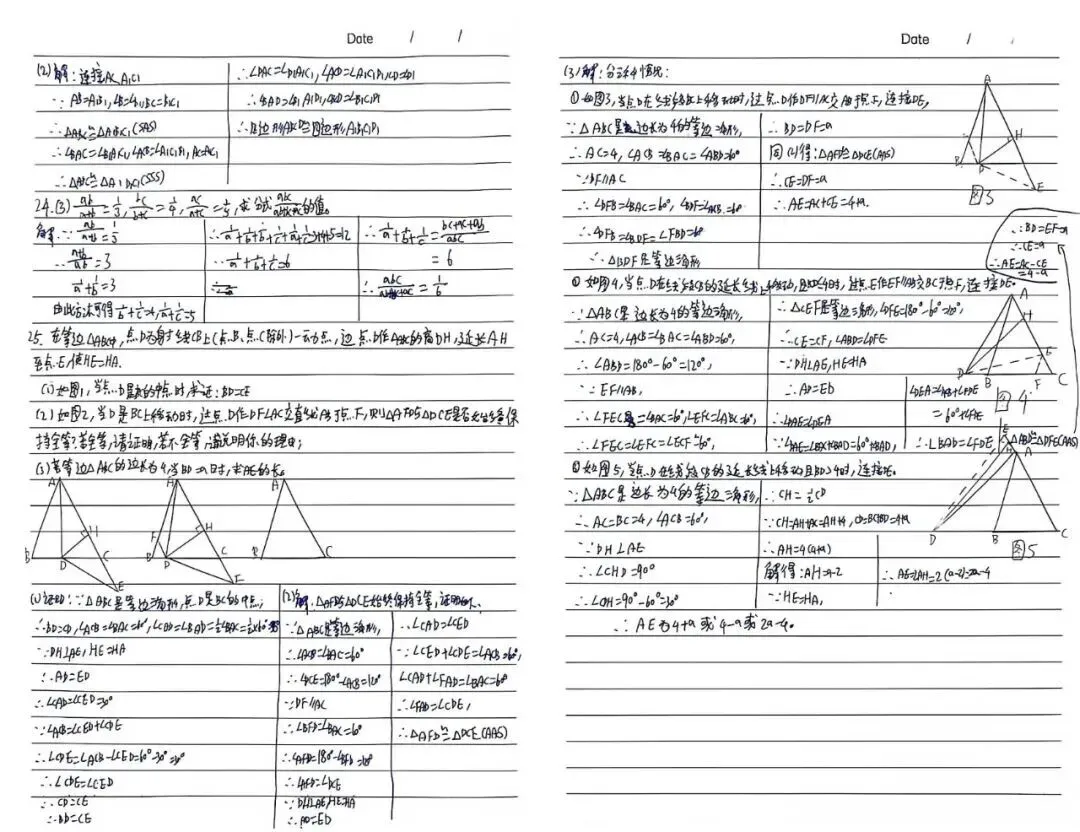 Date / /
(2)解:连接AC,A₁C₁
∵AB=A₁B₁,∠B=∠B₁,BC=B₁C₁
∴△ABC≌△A₁B₁C₁(SAS)
∴∠BAC=∠B₁A₁C₁,∠ACB=∠A₁C₁B₁,AC=A₁C₁
∴△ADC≌△A₁D₁C₁(SSS)
∴∠DAC=∠D₁A₁C₁,∠ACD=∠A₁C₁D₁,∠D=∠D₁
∴∠BAD=∠B₁A₁D₁,∠BCD=∠B₁C₁D₁
∴四边形ABCD≌四边形A₁B₁C₁D₁
24.(3) ab/(a+b)=1/3, bc/(b+c)=1/4, ac/(a+c)=1/5,求分式abc/(ab+bc+ac)的值。
解:∵ab/(a+b)=1/3
∴(a+b)/ab=3
1/a+1/b=3
由此方法可得1/b+1/c=4,1/a+1/c=5
∴1/a+1/b+1/b+1/c+1/a+1/c=3+4+5=12
∴1/a+1/b+1/c=6
∴1/a+1/b+1/c=(bc+ac+ab)/abc
=6
∴abc/(ab+bc+ac)=1/6
25. 在等边△ABC中,点D为射线CB上(点B、点C除外)一动点,过点D作△ABC的高DH,延长AH
至点E,使HE=HA.
(1)如图1,当点D是BC的中点时,求证:BD=CE
(2)如图2,当D是BC上移动时,过点D作DF∥AC交直线AB于点F,则△AFD与△DCE是否始终保
持全等?若全等,请证明,若不全等,请说明你的理由;
(3)若等边△ABC的边长为4,当BD=a时,求AE的长。
A B D C H E
A F B D C H E
A B C
(1)证明:∵△ABC是等边三角形,点D是BC的中点,
∴BD=CD,∠ACB=∠BAC=60°,∠CED=∠BAD=½∠BAC=½×60°
∵DH⊥AE,HE=HA
∴AD=ED
∴∠CAD=∠CED=30°
∵∠ACB=∠CED+∠CDE
∴∠CDE=∠ACB-∠CED=60°-30°=30°
∴∠CDE=∠CED
∴CD=CE
∴BD=CE
(2)解:△AFD与△DCE始终保持全等,证明如下.
∵△ABC是等边三角形,
∴∠ACB=∠BAC=60°
∴∠DCE=180°-∠ACB=120°
∵DF∥AC
∴∠BFD=∠BAC=60°
∴∠AFD=180°-∠BFD=120°
∴∠AFD=∠DCE
∵DH⊥AE,HE=HA
∴AD=ED
∴∠CAD=∠CED
∵∠CED+∠CDE=∠ACB=60°,
∠CAD+∠FAD=∠BAC=60°
∴∠FAD=∠CDE,
∴△AFD≌△DCE(AAS)
Date / /
(3)解:分三种情况:
①如图3,当点D在线段BC上移动时,过点D作DF∥AC交AB于点F,连接DE,
∵△ABC是边长为4的等边三角形,
∴AC=4,∠ACB=∠BAC=∠ABD=60°
∵DF∥AC
∴∠DFB=∠BAC=60°,∠BDF=∠ACB=60°
∴∠DFB=∠BDF=∠FBD=60°
∴△BDF是等边三角形
∴BD=DF=a
同(2)得:△AFD≌△DCE(AAS)
∴CE=DF=a
∴AE=AC+CE=4+a.
A H B D E
图3
∴BD=EF=a
∴CE=a
∴AE=AC-CE
=4-a
②如图4,当点D在线段CB的延长线上移动,且BD<4时,过点E作EF∥AB交BC于点F,连接DE.
∵△ABC是边长为4的等边三角形,
∴AC=4,∠ACB=∠BAC=∠ABD=60°,
∴∠ABD=180°-60°=120°,
∵EF∥AB,
∴∠FEC=∠BAC=60°,∠EFC=∠ABC=60°,
∴∠FEC=∠EFC=∠ECF=60°,
∴△CEF是等边三角形,∠DFE=180°-60°=120°,
∴CE=CF,∠ABD=∠DFE
∵DH⊥AE,HE=HA
∴AD=ED
∴∠DAE=∠DEA
∵∠DAE=∠BAC+∠BAD=60°+∠BAD,
∠DEA=∠ACB+∠FDE
=60°+∠FDE
∴∠BAD=∠FDE
∴△ABD≌△DFE(AAS)
A H E D B F C
图4
③如图5,当点D在线段CB的延长线上移动且BD>4时,连接DE.
∵△ABC是边长为4的等边三角形,
∴AC=BC=4,∠ACB=60°,
∵DH⊥AE
∴∠CHD=90°
∴∠CDH=90°-60°=30°
∴CH=½CD
∵CH=AH+AC=AH+4,CD=BC+BD=4+a
∴AH+4=½(4+a)
解得:AH=½a-2
∵HE=HA,
∴AE=2AH=2(½a-2)=a-4
E H A D B C
图5
∴AE为4+a或4-a或a-4.